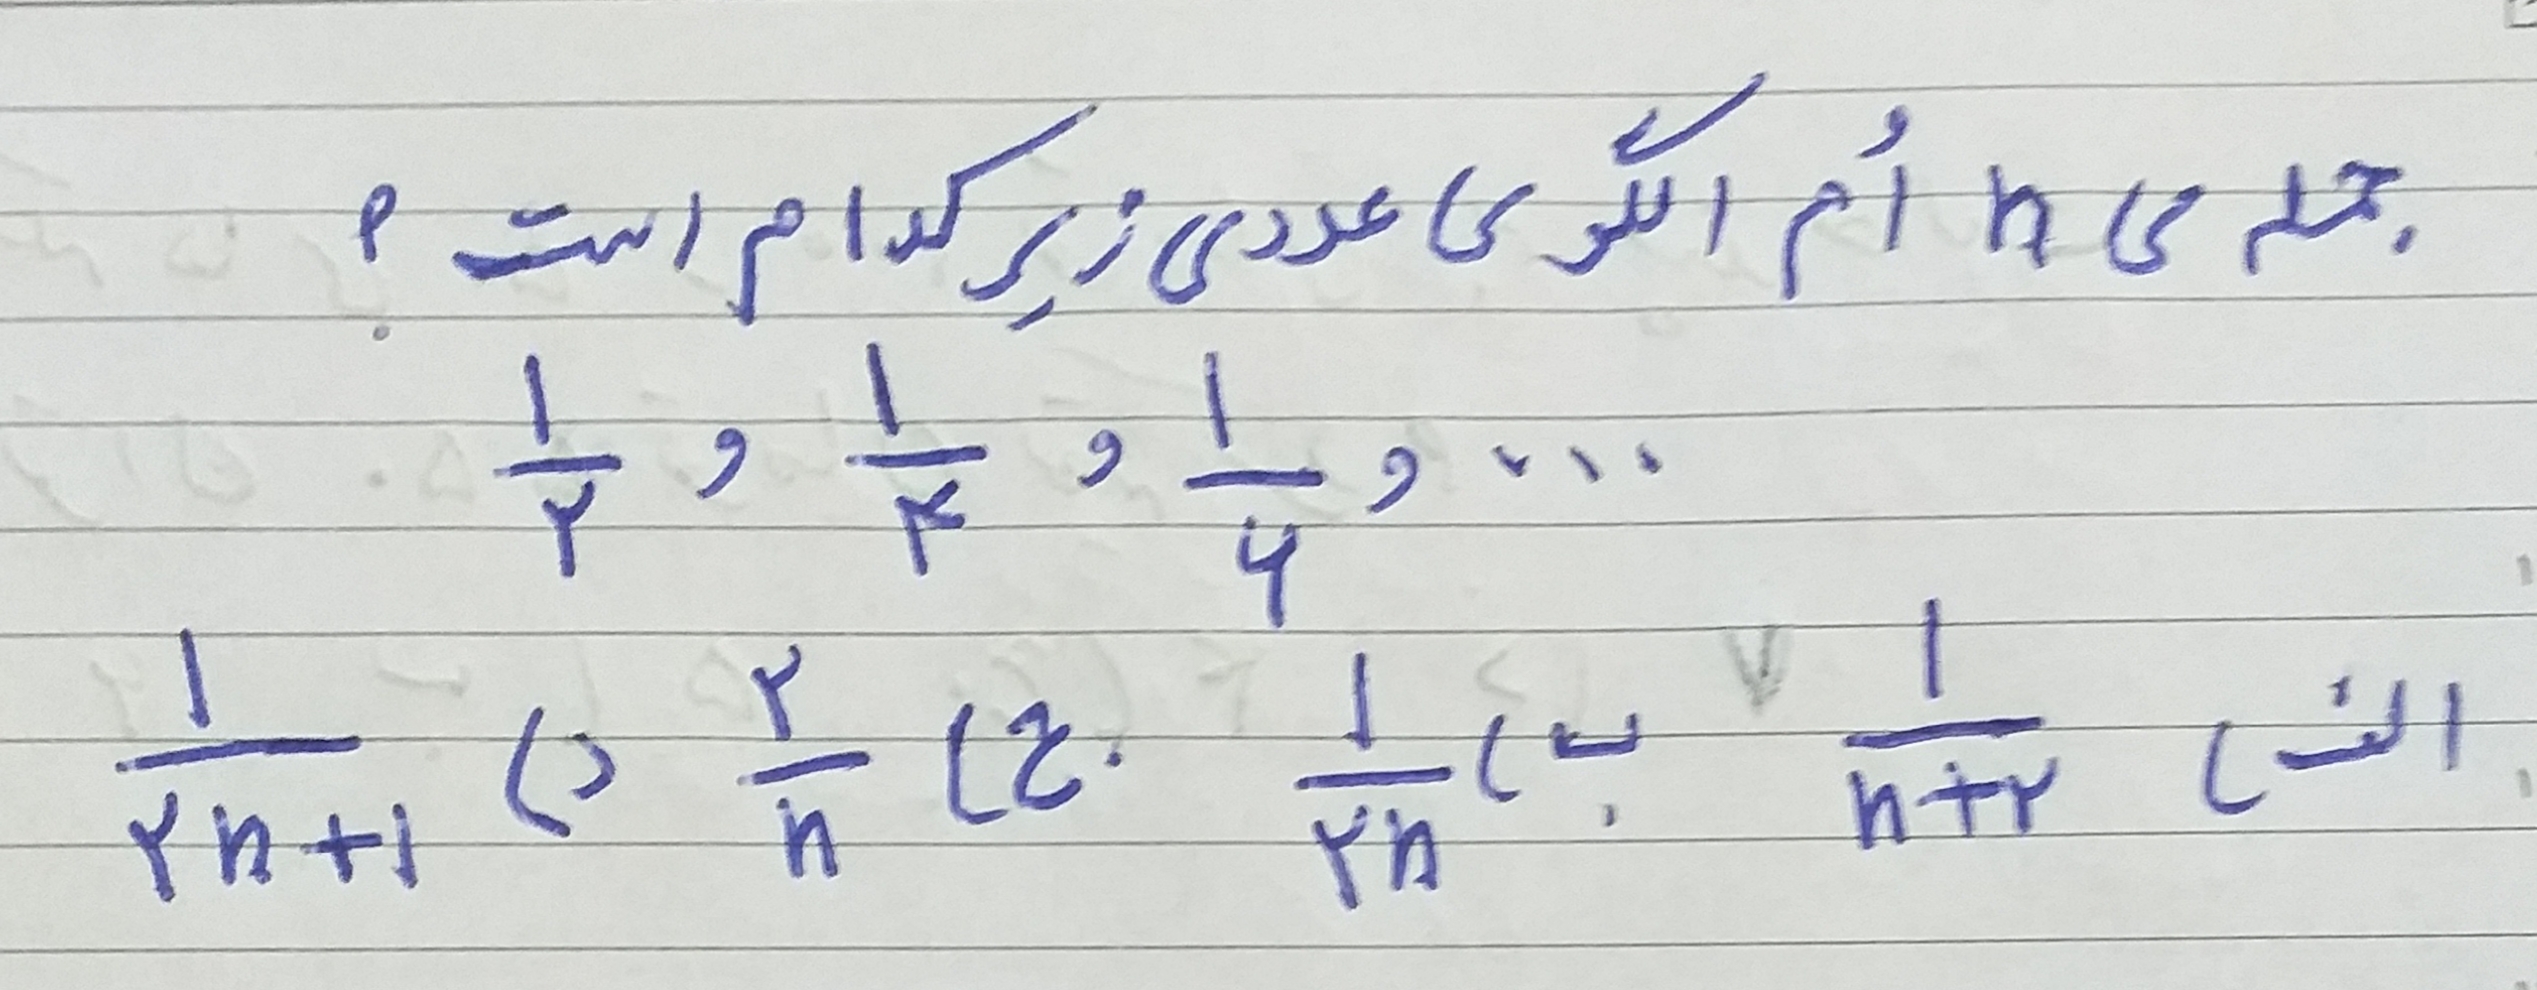 جمله ی n اُم الگوی عددی زیر کدام است ؟
۱/۲ , ۱/۴ , ۱/۶ , ...
الف) ۱/(n+۲) ب) ۱/(۲n) ج) ۲/n د) ۱/(۲n+۱)